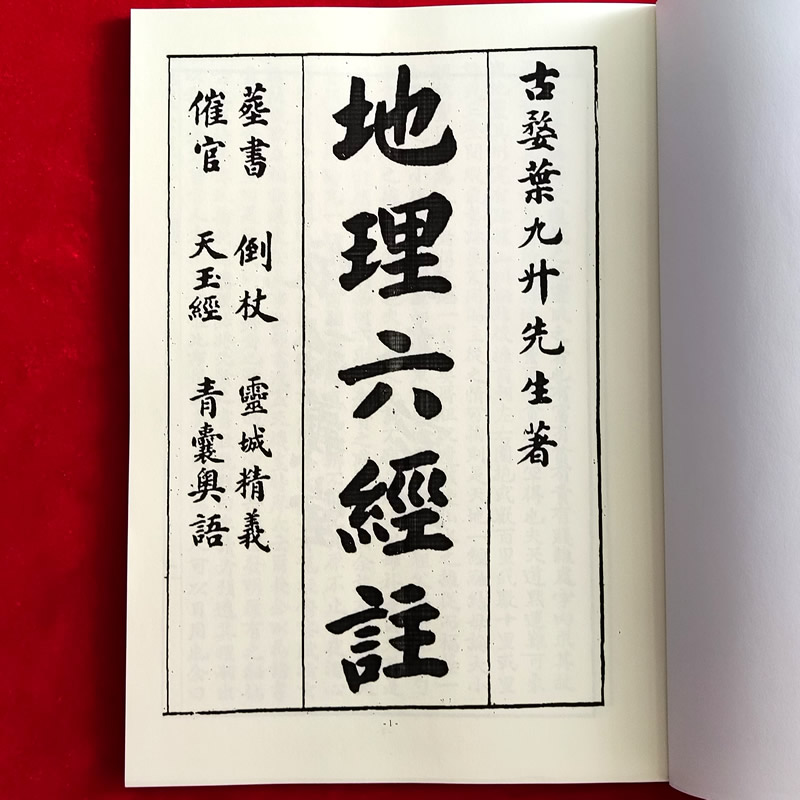 古婺葉九升先生著
地理六經註
葬書 倒杖 靈城精義
催官 天玉經 青囊奧語
-1-